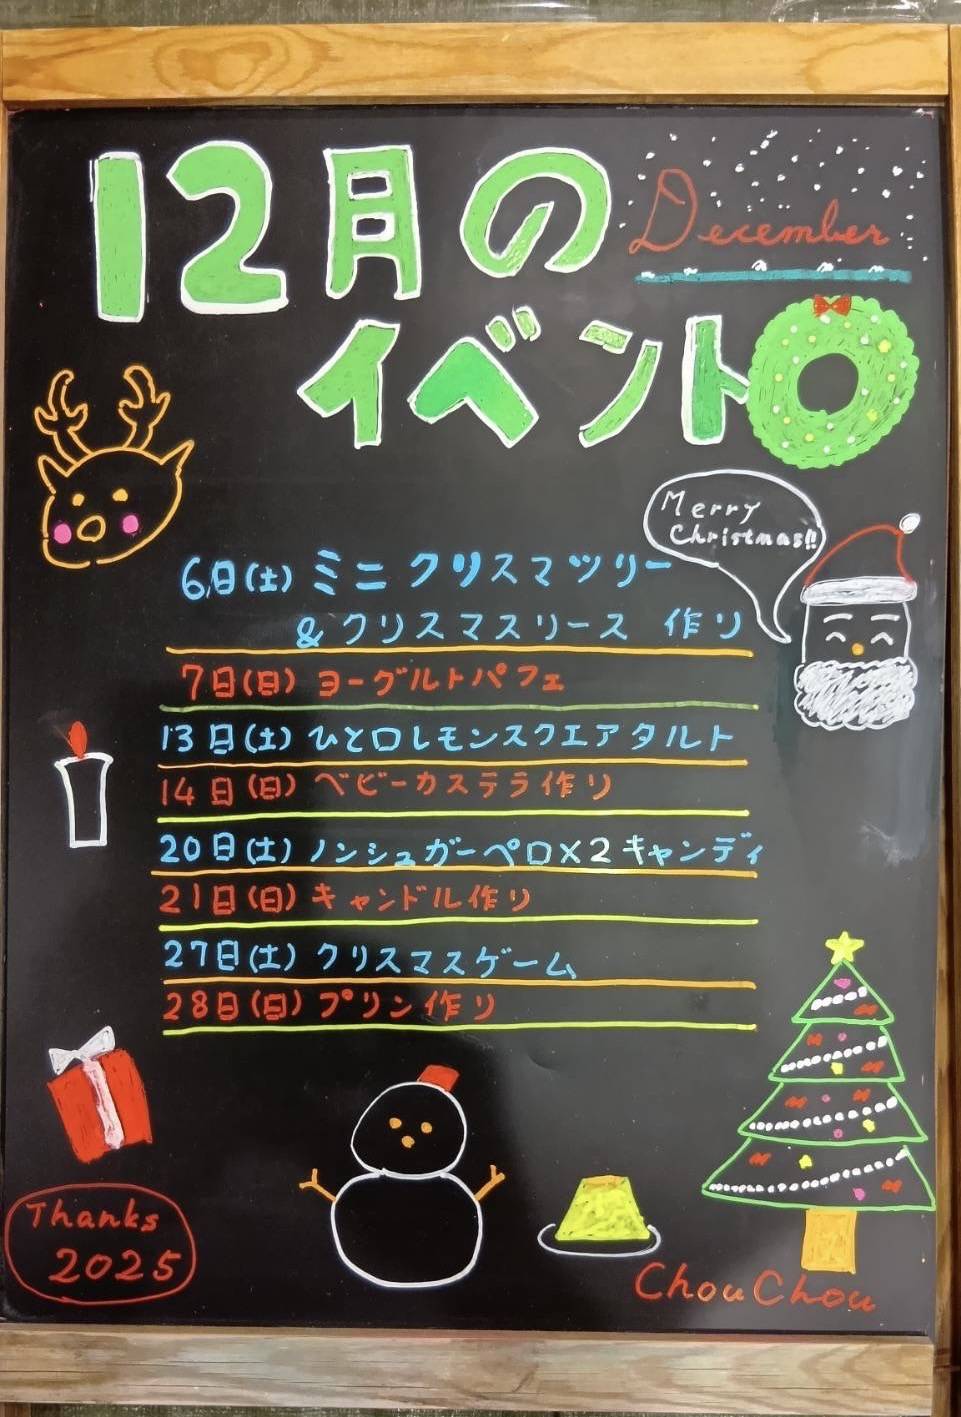 12月の
December
イベント
Merry
Christmas!!
6日(土) ミニクリスマスツリー
&クリスマスリース 作り
7日(日) ヨーグルトパフェ
13日(土) ひと口レモンスクエアタルト
14日(日) ベビーカステラ作り
20日(土) ノンシュガーペロ×2キャンディ
21日(日) キャンドル作り
27日(土) クリスマスゲーム
28日(日) プリン作り
Thanks
2025
ChouChou